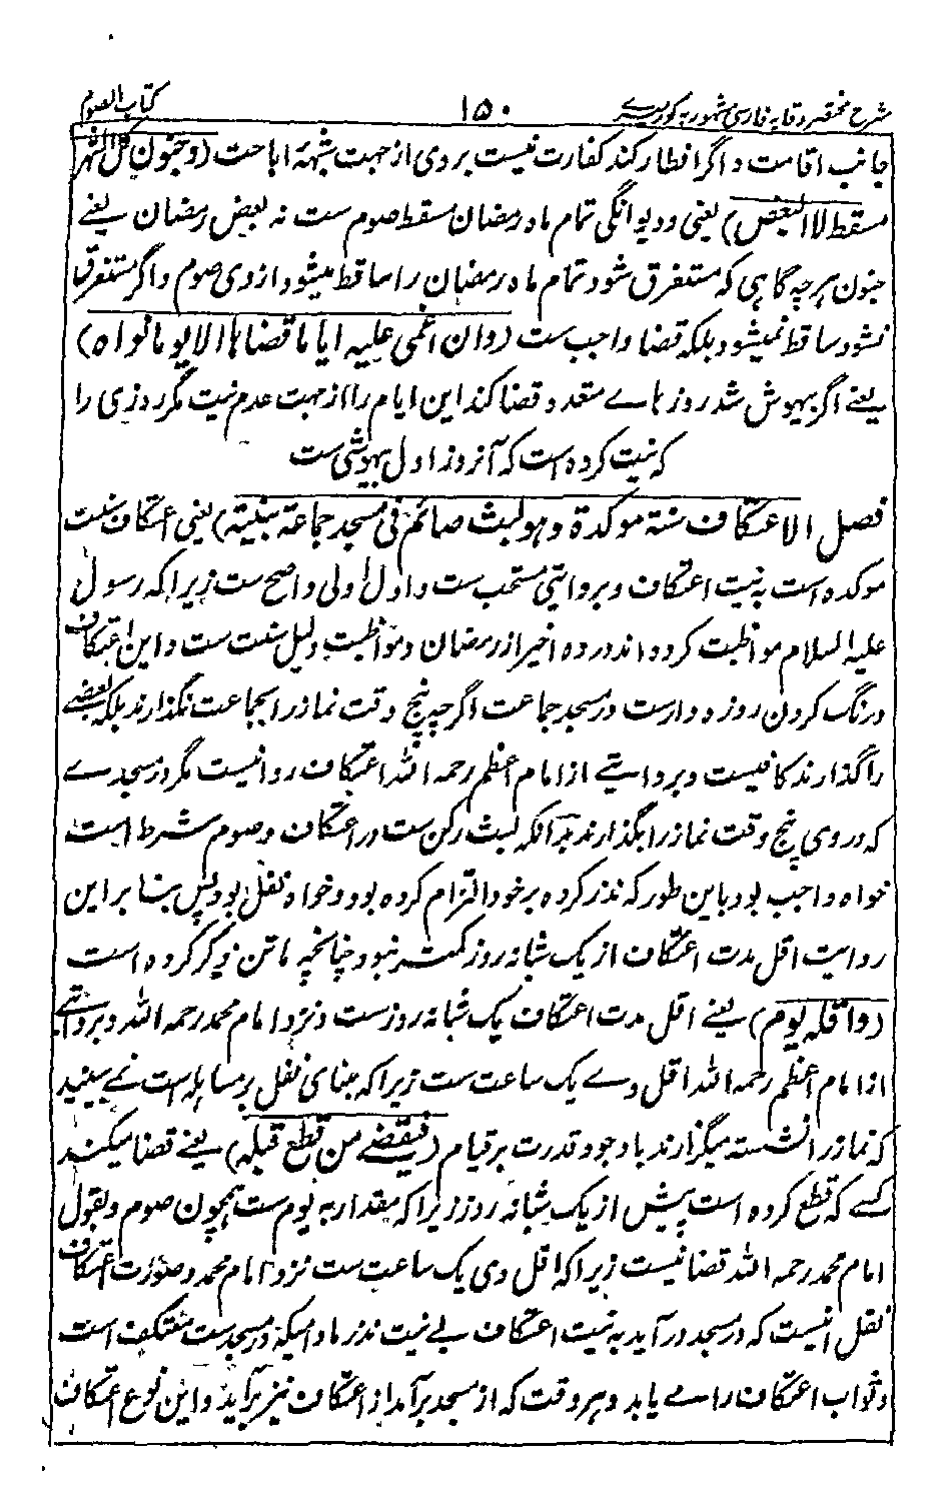 شرح مختصر وقایه فارسی مشهور به کور سیری
۱۵۰
کتاب الصوم
جانب اقامت و اگر افطار کند کفارت نیست بر وی از جهت شبهۀ اباحت (وجنون کل الشهر
مسقط لا البعض) یعنی و دیوانگی تمام ماه رمضان مسقط صوم ست نه بعض رمضان یعنے
جنون هر چه گاهی که مستغرق شود تمام ماه رمضان را ساقط میشود از وی صوم و اگر مستغرق
نشود ساقط نمیشود بلکه قضا واجب ست (وان اغمی علیه ایاما قضاها الا یوما نواه)
یعنے اگر بیهوش شد روز هاے متعدد قضا کند این ایام را از جهت عدم نیت مگر روزی را
که نیت کرده است که آنروز اول بیهوشی ست
فصل الاعتکاف سنة موکدة وهو لبث صائم فی مسجد جماعة بنیته) یعنی اعتکاف سنت
موکده است به نیت اعتکاف و بروایتی مستحب ست و اول اولی و اصح ست زیراکه رسول
علیه السلام مواظبت کرده اند در ده اخیر از رمضان و مواظبت دلیل سنت ست و این اعتکاف
درنگ کردن روزه دارست در مسجد جماعت اگرچه پنج وقت نماز را بجماعت نگذارند بلکه بعضے
را گذارند کافیست و بروایتے از امام اعظم رحمه الله اعتکاف روا نیست مگر در مسجدے
که در وی پنج وقت نماز را بگذارند بدانکه لبث رکن ست در اعتکاف و صوم شرط است
خواه واجب بود باین طور که نذر کرده بر خود التزام کرده بود و خواه نفل بود پس بنا بر این
روایت اقل مدت اعتکاف از یک شبانه روز کمتر نبود چنانچه ماتن ذکر کرده است
(واقله یوم) یعنے اقل مدت اعتکاف یک شبانه روزست و نزد امام محمد رحمه الله و بروایتے
از امام اعظم رحمه الله اقل وے یک ساعت ست زیراکه بنای نفل بر مساهله است نمے بینید
که نماز را نشسته میگزارند با وجود قدرت بر قیام (فیقضے من قطع قبله) یعنے قضا میکند
کسے که قطع کرده است پیش از یک شبانه روز زیراکه مقدار به یوم ست همچون صوم و بقول
امام محمد رحمه الله قضا نیست زیراکه اقل وی یک ساعت ست نزد امام محمد و صورت اعتکاف
نفل انیست که در مسجد در آید به نیت اعتکاف بے نیت نذر مادامیکه در مسجدست معتکف است
و ثواب اعتکاف را مے یابد و هر وقت که از مسجد برآمد از اعتکاف نیز برآید و این نوع اعتکاف